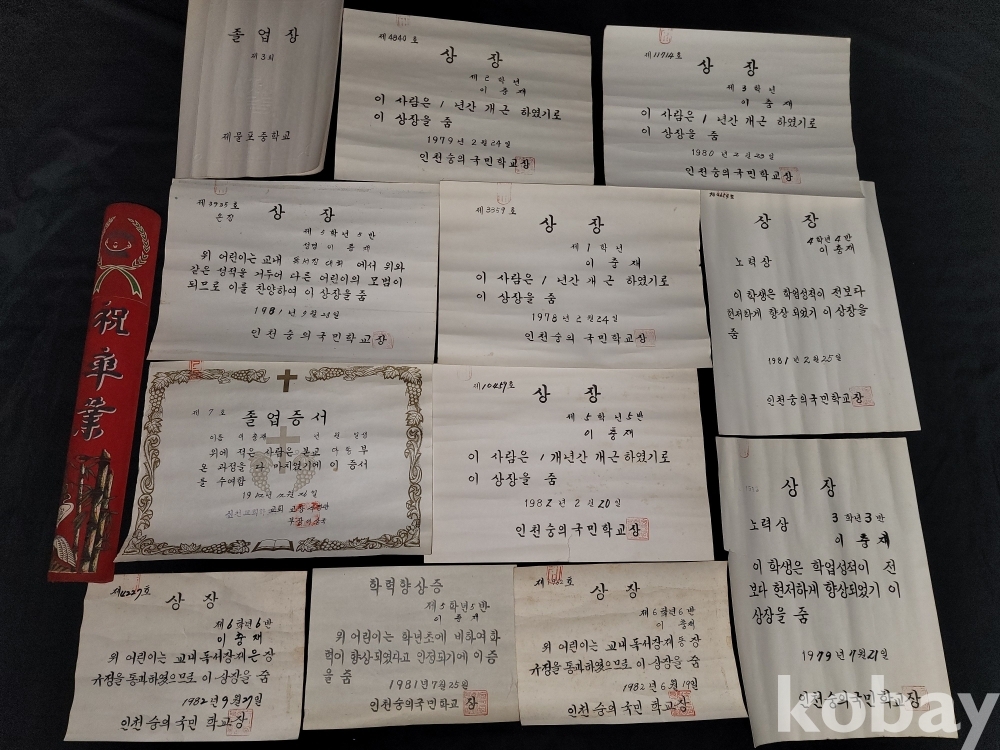 졸업장
제3회
제물포중학교
제4840호
상장
제2학년
이충재
이 사람은 1년간 개근 하였기로
이 상장을 줌
1979년 2월 24일
인천숭의국민학교장
제11714호
상장
제3학년
이충재
이 사람은 1년간 개근 하였기로
이 상장을 줌
1980년 2월 23일
인천숭의국민학교장
제3935호
은장
상장
제5학년 5반
성명 이충재
위 어린이는 교내 독서장 대회에서 위와
같은 성적을 거두어 다른 어린이의 모범이
되므로 이를 찬양하여 이 상장을 줌
1981년 9월 28일
인천숭의국민학교장
제3859호
상장
제1학년
이충재
이 사람은 1년간 개근 하였기로
이 상장을 줌
1978년 2월 24일
인천숭의 국민학교장
상장
4학년4반
이충재
노력상
이 학생은 학업성적이 전보다
현저하게 향상 되었기 이 상장을
줌
1981년 2월 25일
인천숭의국민학교장
祝卒業
제7호
졸업증서
이름 이충재 년 월 일생
위에 적은 사람은 본교
온 과정을 다 마치었기에 이 증서
를 수여함
교회
제10459호
상장
제5학년5반
이충재
이 사람은 1개년간 개근 하였기로
이 상장을 줌
1982년 2월 20일
인천숭의 국민학교장
상장
3학년3반
노력상
이충재
이 학생은 학업성적이 전
보다 현저하게 향상되었기 이
상장을 줌
1979년 7월 21일
인천숭의국민학교장
제4227호
상장
제6학년6반
이충재
위 어린이는 교내독서장제은장
규정을 통과하였으므로 이 상장을 줌
1982년 9월 27일
인천숭의국민학교장
학력향상증
제5학년5반
이충재
위 어린이는 학년초에 비하여 학
력이 향상되었다고 인정되기에 이 증
을 줌
1981년 7월 25일
인천숭의국민학교장
상장
제6학년6반
이충재
위 어린이는 교내독서장제동장
규정을 통과하였으므로 이 상장을 줌
1982년 6월 19일
인천숭의국민학교장
kobay